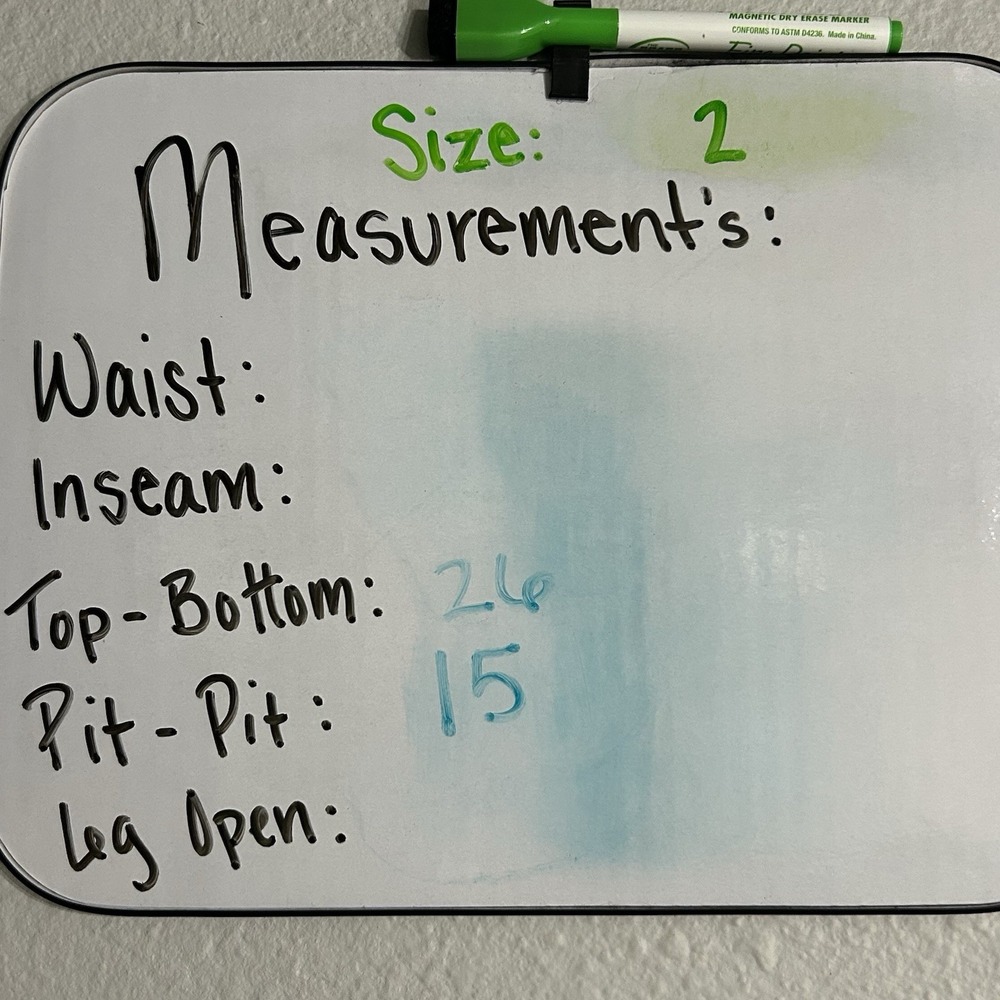 MAGNETIC DRY ERASE MARKER
CONFORMS TO ASTM D4236. Made in China.
Size: 2
Measurement's:
Waist:
Inseam:
Top-Bottom: 26
Pit-Pit: 15
Leg Open: